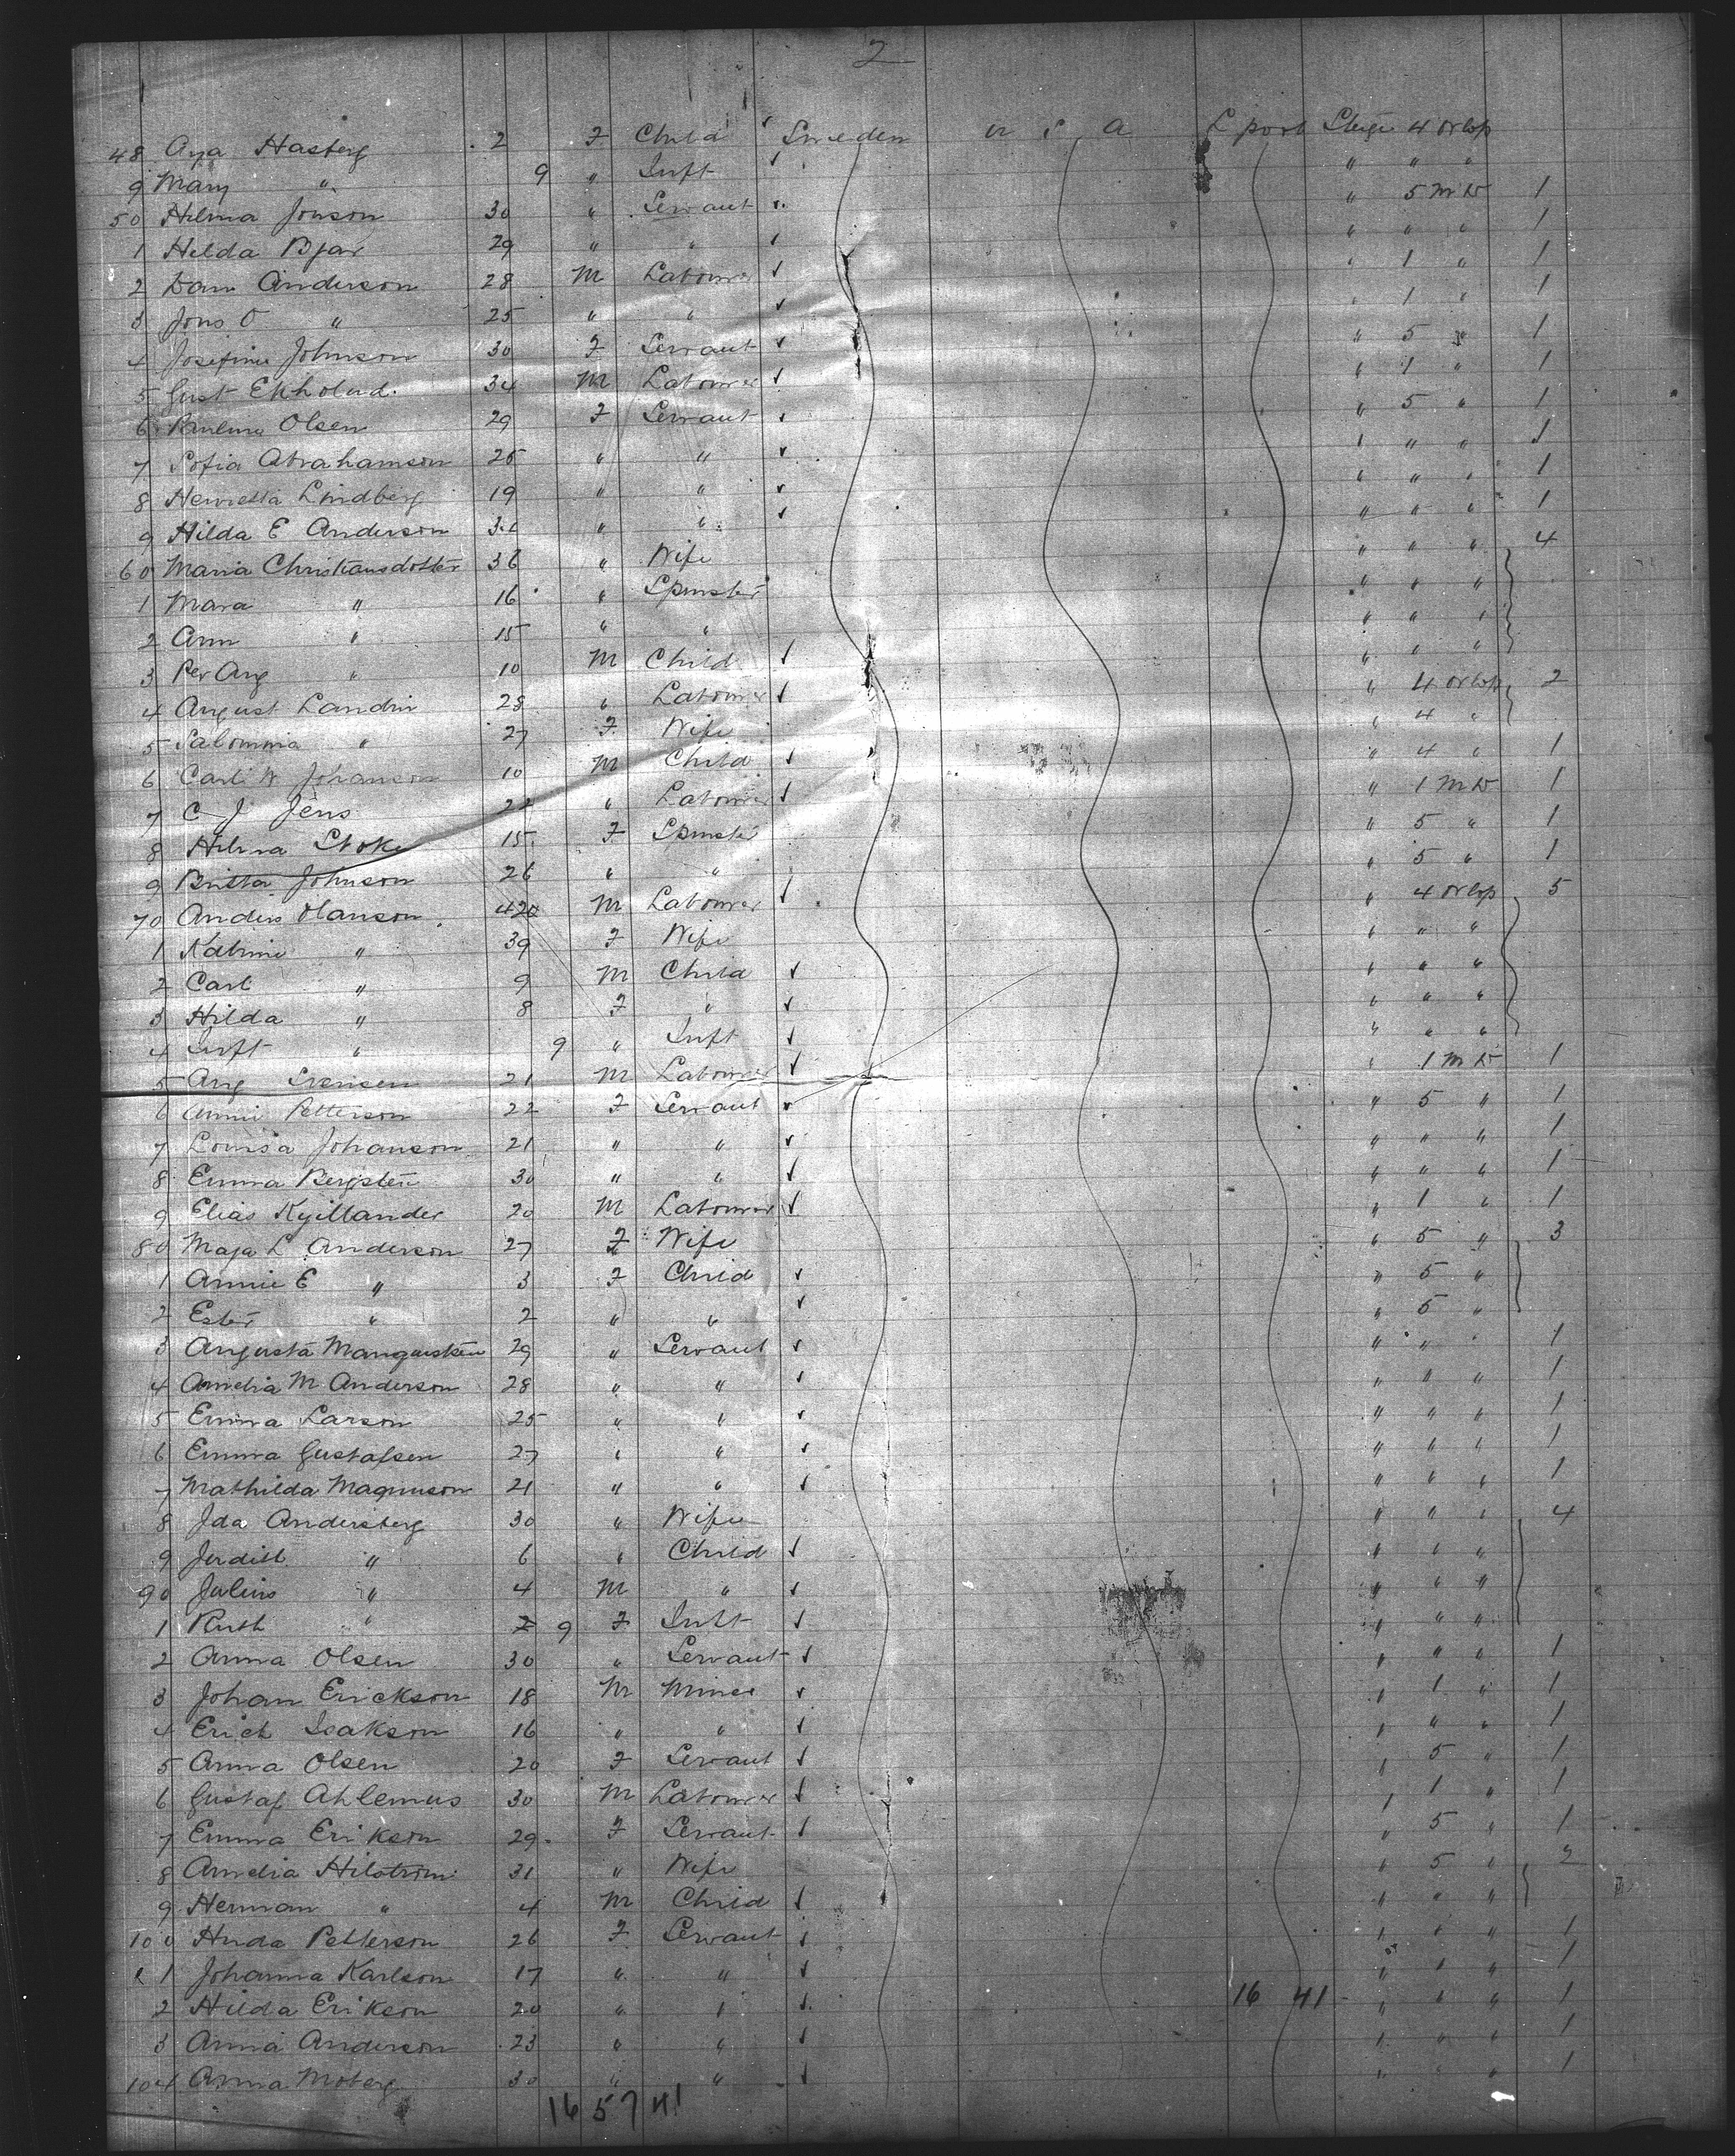 2
48 Aya Hasberg 2 F Child ✓ Sweden U S A L pool Sterge 4 orlop
9 Mary " 9 " Inft ✓ " " "
50 Hilma Jonson 30 " Servant ✓ " 5 M D 1
1 Hilda Bjar 29 " " ✓ " " " 1
2 Dan Anderson 28 M Labourer ✓ " 1 " 1
3 Jons O " 25 " " ✓ " 1 " 1
4 Josefine Johnson 30 F Servant ✓ " 5 " 1
5 Gust Ekholud 34 M Labourer ✓ " 1 " 1
6 Olsen 29 F Servant ✓ " 5 " 1
7 Sofia Abrahamson 25 " " ✓ " " " 1
8 Henretta Lindberg 19 " " ✓ " " " 1
9 Hilda E Anderson " " ✓ " " " 1
60 Maria Christiansdotter 36 " Wife " " " 4
1 Mara " 16 " Spinster " " "
2 Ann " 15 " " " " "
3 Per Aug " 10 M Child ✓ " " "
4 August Landin 28 " Labourer ✓ " 4 orlop 2
5 Salomina " 27 F Wife " 4 "
6 Carl W Johanson 10 M Child ✓ " 4 " 1
7 C J Jens 22 " Labourer ✓ " 1 M D 1
8 Hilma Stoke 15 F Spinster " 5 " 1
9 Brista Johnson 26 " " " 5 " 1
70 Anders Olanson 42 M Labourer ✓ " 4 orlop 5
1 Katrine " 39 F Wife " " "
2 Carl " 9 M Child ✓ " " "
3 Hilda " 8 F " ✓ " " "
4 Inft " 9 " Inft ✓ " " "
5 Aug Svensen 21 M Labourer ✓ " 1 M D 1
6 Annie Petterson 22 F Servant ✓ " 5 " 1
7 Louisa Johanson 21 " " ✓ " " " 1
8 Emma Bergsten 30 " " ✓ " " " 1
9 Elias Kyillander 20 M Labourer ✓ " 1 " 1
80 Maja L Anderson 27 F Wife " 5 " 3
1 Annie E " 3 F Child ✓ " 5 "
2 Ester " 2 " " ✓ " 5 "
3 Augusta 29 " Servant ✓ " " " 1
4 Amelia M Anderson 28 " " ✓ " " " 1
5 Emma Larson 25 " " ✓ " " " 1
6 Emma Gustafsen 27 " " ✓ " " " 1
7 Mathilda Magnuson 21 " " ✓ " " " 1
8 Ida Andersberg 30 " Wife " " " 4
9 Jerdith " 6 " Child ✓ " " "
90 Julius " 4 M " ✓ " " "
1 Ruth " 9 F Inft ✓ " " "
2 Anna Olsen 30 " Servant ✓ " " " 1
3 Johan Erickson 18 M Miner ✓ " 1 " 1
4 Erich Isakson 16 " " ✓ " " " 1
5 Anna Olsen 20 F Servant ✓ " 5 " 1
6 Gustaf Ahlemus 30 M Labourer ✓ " 1 " 1
7 Emma Erikson 29 F Servant ✓ " 5 " 1
8 Amelia Hilström 31 " Wife " 5 " 2
9 Herman " 4 M Child ✓ " " "
100 Hilda Petterson 26 F Servant ✓ " " " 1
1 Johanna Karlson 17 " " ✓ " " " 1
2 Hilda Erikson 20 " " ✓ 16 41 " " " 1
3 Anna Anderson 23 " " ✓ " " " 1
104 Anna Moberg 30 " " ✓ " " " 1
16 57 41